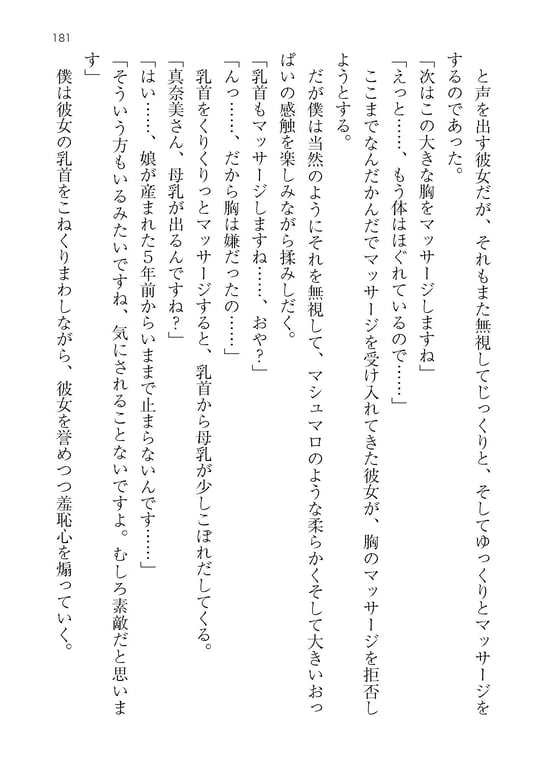 181
と声を出す彼女だが、それもまた無視してじっくりと、そしてゆっくりとマッサージを
するのであった。
「次はこの大きな胸をマッサージしますね」
「えっと……、もう体はほぐれているので……」
ここまでなんだかんだでマッサージを受け入れてきた彼女が、胸のマッサージを拒否し
ようとする。
だが僕は当然のようにそれを無視して、マシュマロのような柔らかくそして大きいおっ
ぱいの感触を楽しみながら揉みしだく。
「乳首もマッサージしますね……、おや？」
「んっ……、だから胸は嫌だったの……」
乳首をくりくりっとマッサージすると、乳首から母乳が少しこぼれだしてくる。
「真奈美さん、母乳が出るんですね？」
「はい……、娘が産まれた５年前からいままで止まらないんです……」
「そういう方もいるみたいですね、気にされることないですよ。むしろ素敵だと思いま
す」
僕は彼女の乳首をこねくりまわしながら、彼女を誉めつつ羞恥心を煽っていく。